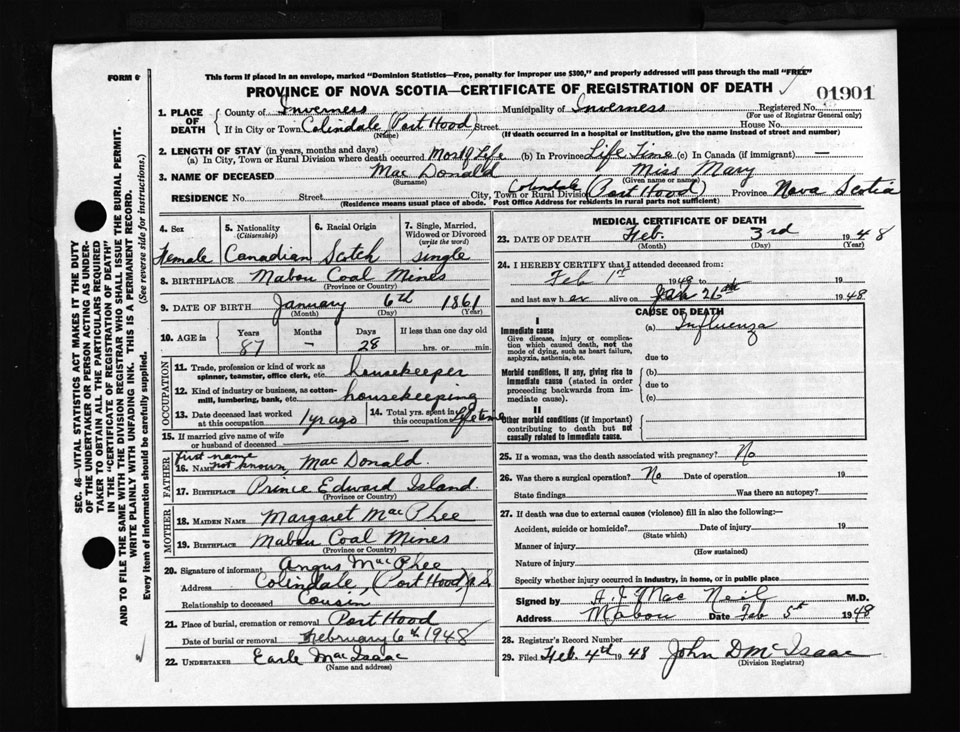 FORM 6
This form if placed in an envelope, marked "Dominion Statistics—Free, penalty for improper use $300," and properly addressed will pass through the mail "FREE"
PROVINCE OF NOVA SCOTIA—CERTIFICATE OF REGISTRATION OF DEATH
01901
1. PLACE OF DEATH County of Inverness Municipality of Inverness Registered No.
(For use of Registrar General only)
If in City or Town Colindale (Port Hood) Street House No.
(Name) (If death occurred in a hospital or institution, give the name instead of street and number)
2. LENGTH OF STAY (in years, months and days)
(a) In City, Town or Rural Division where death occurred Most of Life (b) In Province Life Time (c) In Canada (if immigrant) —
3. NAME OF DECEASED Mac Donald Miss Mary
(Surname) (Given name or names)
RESIDENCE No. Street City, Town or Rural Division Colindale (Port Hood) Province Nova Scotia
(Residence means usual place of abode. Post Office Address for residents in rural parts not sufficient)
SEC. 46—VITAL STATISTICS ACT MAKES IT THE DUTY
OF THE UNDERTAKER OR PERSON ACTING AS UNDER-
TAKER TO OBTAIN ALL THE PARTICULARS REQUIRED
IN THE "CERTIFICATE OF REGISTRATION OF DEATH"
AND TO FILE THE SAME WITH THE DIVISION REGISTRAR WHO SHALL ISSUE THE BURIAL PERMIT.
WRITE PLAINLY WITH UNFADING INK. THIS IS A PERMANENT RECORD.
Every item of information should be carefully supplied. (See reverse side for instructions.)
4. Sex 5. Nationality (Citizenship) 6. Racial Origin 7. Single, Married, Widowed or Divorced (write the word)
Female Canadian Scotch single
8. BIRTHPLACE Mabou Coal Mines
(Province or Country)
9. DATE OF BIRTH January 6th 1861
(Month) (Day) (Year)
10. AGE in Years Months Days If less than one day old
87 — 28 hrs. or min.
OCCUPATION
11. Trade, profession or kind of work as spinner, teamster, office clerk, etc. housekeeper
12. Kind of industry or business, as cotton-mill, lumbering, bank, etc. housekeeping
13. Date deceased last worked at this occupation 1 yr ago 14. Total yrs. spent in this occupation Lifetime
15. If married give name of wife or husband of deceased
FATHER
first name not known
16. NAME Mac Donald.
17. BIRTHPLACE Prince Edward Island.
(Province or Country)
MOTHER
18. MAIDEN NAME Margaret Mac Phee
19. BIRTHPLACE Mabou Coal Mines
(Province or Country)
20. Signature of informant Angus Mac Phee
Address Colindale, (Port Hood)
Relationship to deceased Cousin
21. Place of burial, cremation or removal Port Hood
Date of burial or removal February 6th 1948
22. UNDERTAKER Earle Mac Isaac
(Name and address)
MEDICAL CERTIFICATE OF DEATH
23. DATE OF DEATH Feb. 3rd 1948
(Month) (Day) (Year)
24. I HEREBY CERTIFY that I attended deceased from:
Feb 1st 1948 to 19
and last saw her alive on Jan 26th 1948
CAUSE OF DEATH
I
Immediate cause (a) Influenza
Give disease, injury or complication which caused death, not the mode of dying, such as heart failure, asphyxia, asthenia, etc. due to
Morbid conditions, if any, giving rise to immediate cause (stated in order proceeding backwards from immediate cause). (b) due to (c)
II
Other morbid conditions (if important) contributing to death but not causally related to immediate cause.
25. If a woman, was the death associated with pregnancy? No
26. Was there a surgical operation? No Date of operation 19
State findings Was there an autopsy?
27. If death was due to external causes (violence) fill in also the following:—
Accident, suicide or homicide? Date of injury 19
(State which)
Manner of injury
(How sustained)
Nature of injury
Specify whether injury occurred in industry, in home, or in public place
Signed by A. J. Mac Neil M.D.
Mabou Date Feb 5th 1948
28. Registrar's Record Number
29. Filed Feb. 4th 1948 John D Mc Isaac
(Division Registrar)